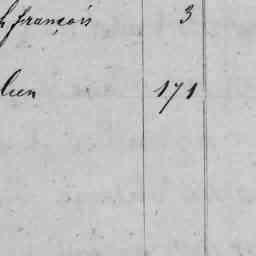 h françois 3
lien 171